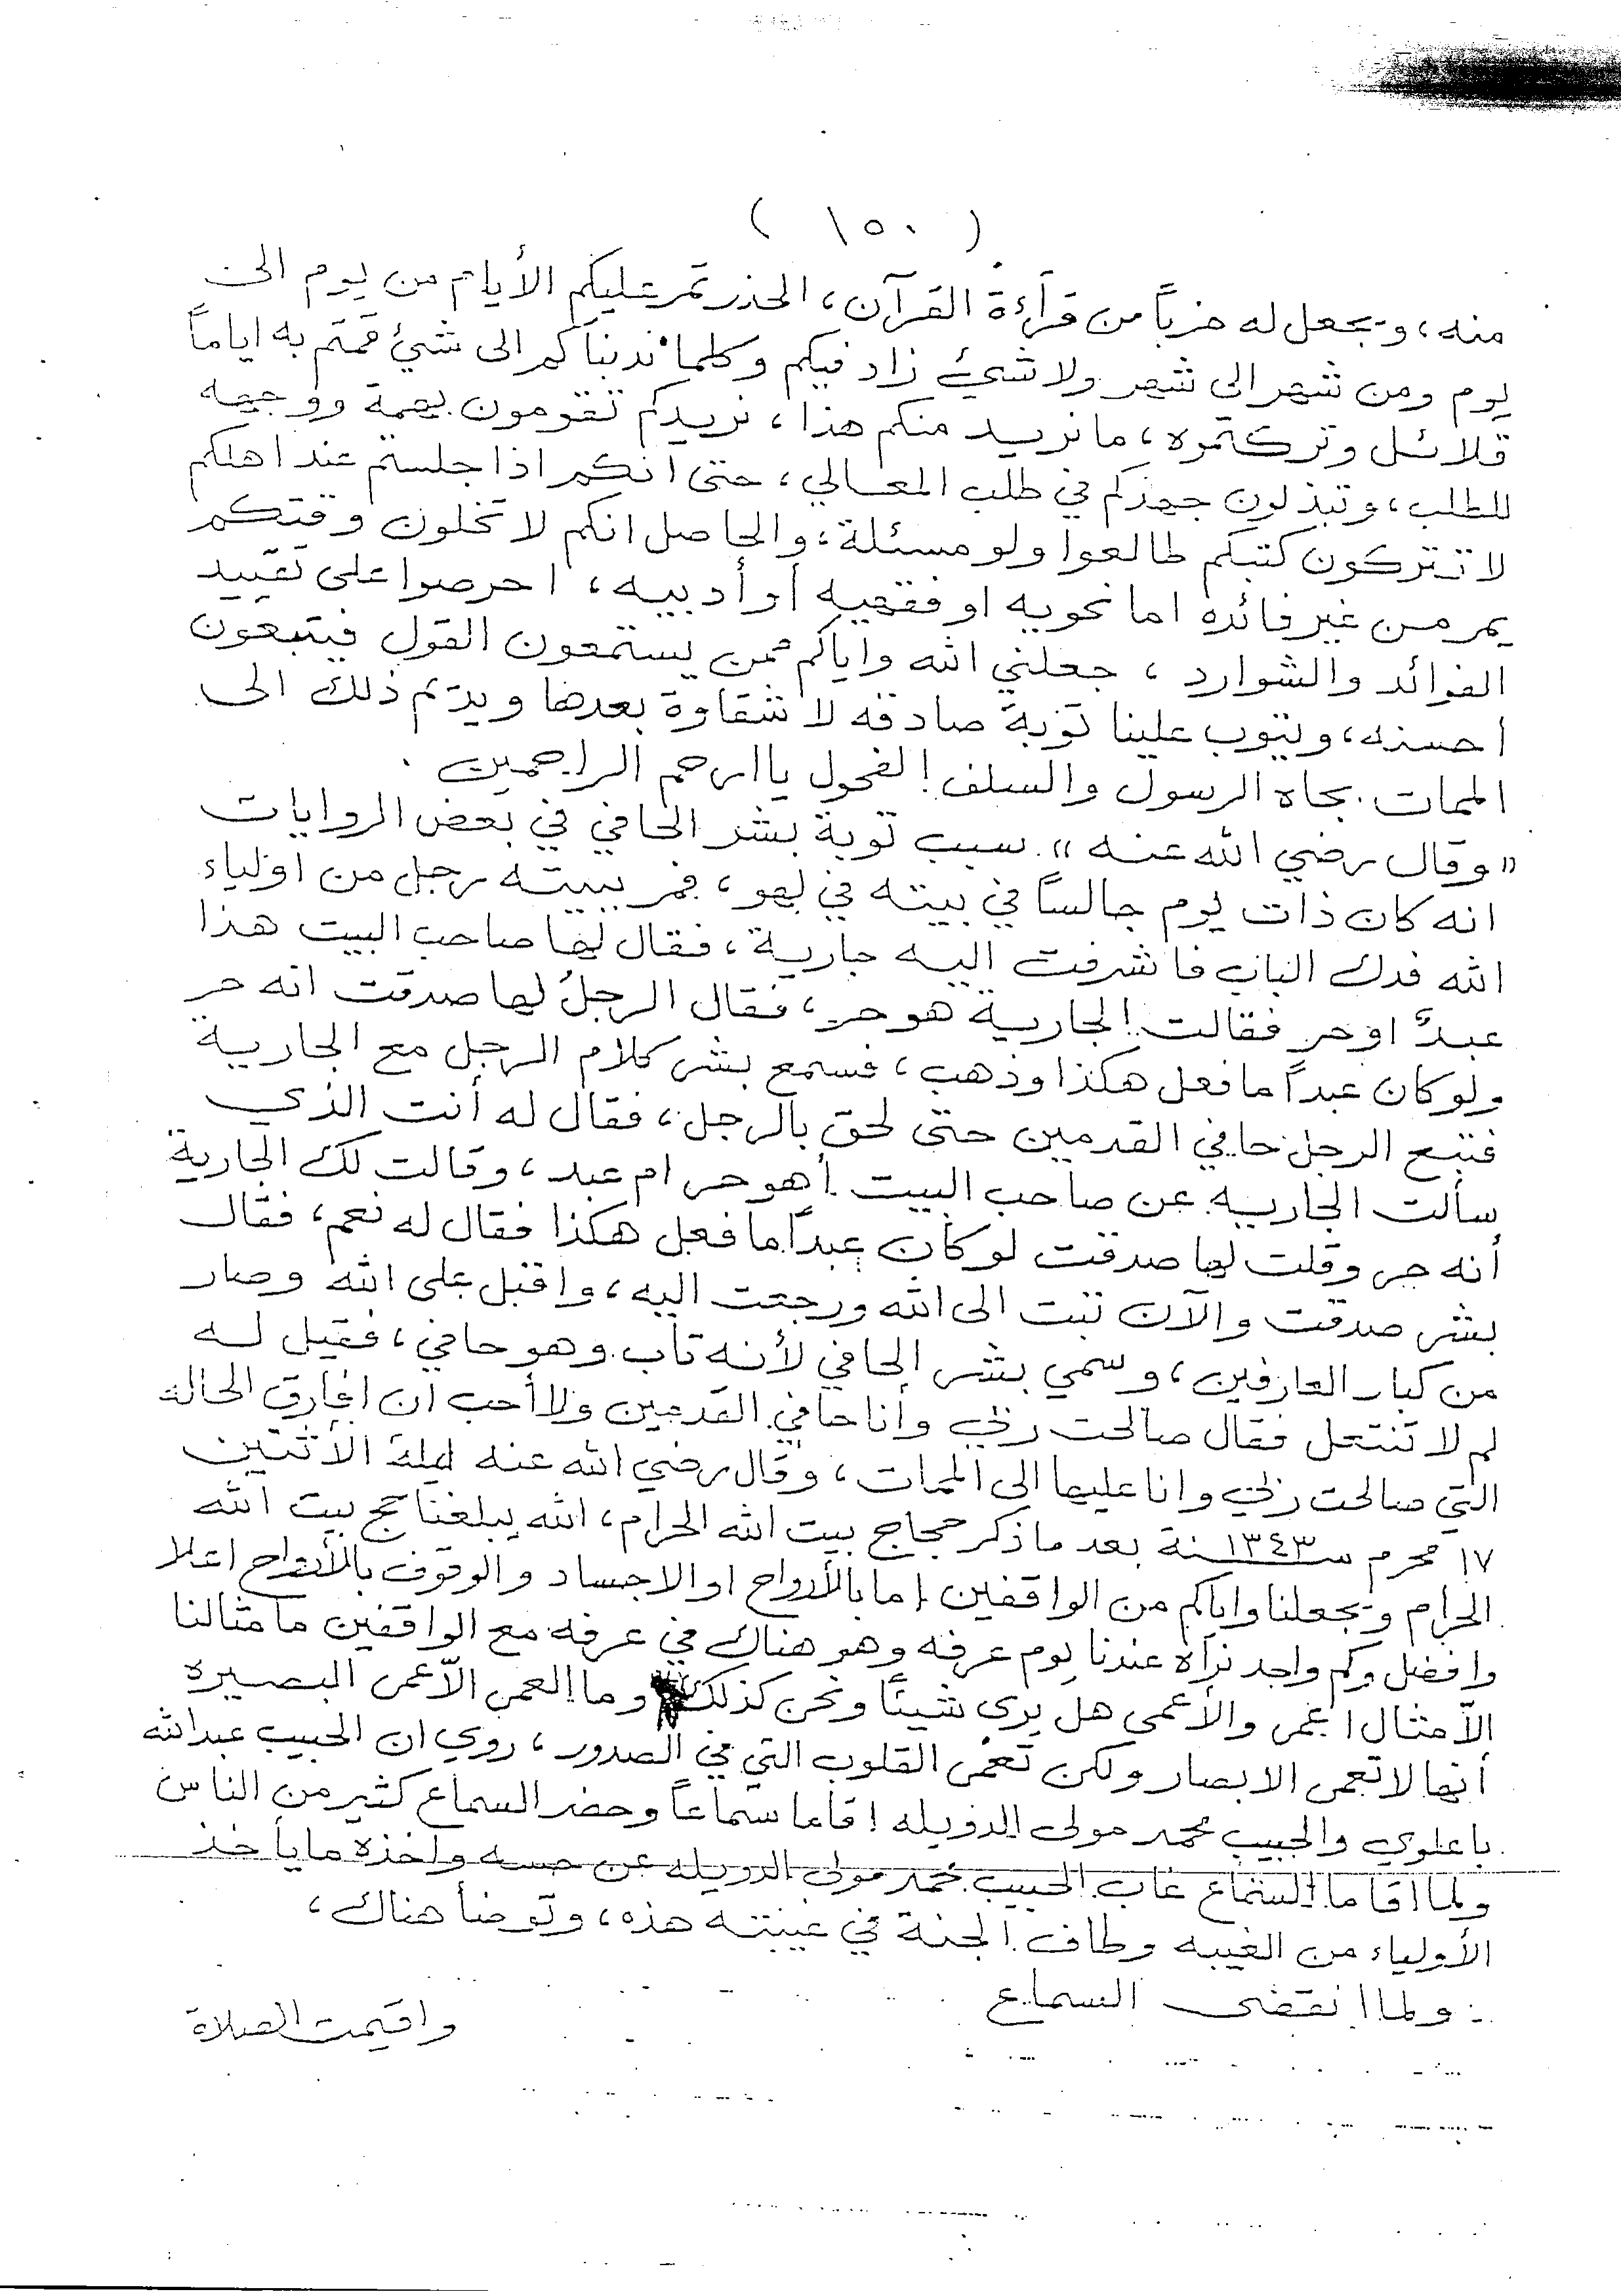 ( ١٥٠ )
منه، ويجعل له حزباً من قرآءة القرآن، الحذر تمر عليكم الأيام من يوم الى
يوم ومن شهر الى شهر ولا شيئ زاد فيكم وكلما ندبناكم الى شيئ قمتم به اياماً
قلائل وتركتموه، ما نريد منكم هذا، نريدكم تقومون بهمة ووجيهه
للطلب، وتبذلون جهدكم في طلب المعالي، حتى انكم اذا جلستم عند اهلكم
لا تتركون كتبكم طالعوا ولو مسئلة، والحاصل انكم لا تخلون وقتكم
يمر من غير فائده اما نحويه او فقهيه أو أدبيه، احرصوا على تقييد
الفوائد والشوارد، جعلني الله واياكم ممن يستمعون القول فيتبعون
احسنه، ويتوب علينا توبة صادقه لا شقاوة بعدها ويدتم ذلك الى
الممات بجاه الرسول والسلف الفحول يا ارحم الراحمين .
«وقال رضي الله عنه» سبب توبة بشر الحافي في بعض الروايات
انه كان ذات يوم جالساً في بيته في لهو، فمر ببيته رجل من اولياء
الله فدك الباب فاشرفت اليه جارية، فقال لها صاحب البيت هذا
عبدٌ او حر فقالت الجارية هو حر، فقال الرجلُ لها صدقت انه حر
ولو كان عبداً ما فعل هكذا وذهب، فسمع بشر كلام الرجل مع الجارية
فتبع الرجل حافي القدمين حتى لحق بالرجل، فقال له أنت الذي
سألت الجاريه عن صاحب البيت أهو حر ام عبد، وقالت لك الجارية
أنه حر وقلت لها صدقت لو كان عبداً ما فعل هكذا فقال له نعم، فقال
بشر صدقت والآن تبت الى الله ورجعت اليه، واقبل على الله وصار
من كبار العارفين، وسمي بشر الحافي لأنه تاب وهو حافي، فقيل له
لم لا تنتعل فقال صالحت ربي وأنا حافي القدمين ولا أحب ان افارق الحالة
التي صالحت ربي وانا عليها الى الممات، وقال رضي الله عنه ليلة الأثنين
١٧ محرم سنة ١٣٤٣ بعد ما ذكر حجاج بيت الله الحرام، الله يبلغنا حج بيت الله
الحرام ويجعلنا واياكم من الواقفين إما بالأرواح او الاجساد والوقوف بالأرواح اعلا
وافضل وكم واحد نراه عندنا يوم عرفه وهو هناك في عرفه مع الواقفين ما مثالنا
الأمثال اعمى والأعمى هل يرى شيئاً ونحن كذلك وما العمى الاّعمى البصيره
أنها لا تعمى الابصار ولكن تعمى القلوب التي في الصدور، روي ان الحبيب عبدالله
باعلوي والحبيب محمد مولى الدويله اقاما سماعاً وحضر السماع كثير من الناس
ولما اقاما السماع غاب الحبيب محمد مولى الدويله عن حسه واخذه ما يأخذ
الأولياء من الغيبه وطاف الجنة في غيبته هذه، وتوضأ هناك،
ولما انقضى السماع
واقيمت الصلاة